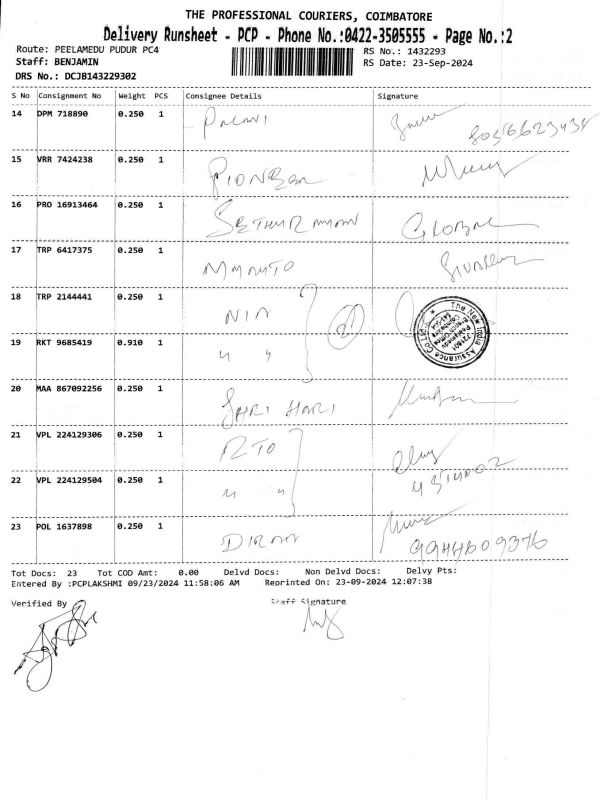 THE PROFESSIONAL COURIERS, COIMBATORE
Delivery Runsheet - PCP - Phone No.:0422-3505555 - Page No.:2
Route: PEELAMEDU PUDUR PC4 RS No.: 1432293
Staff: BENJAMIN RS Date: 23-Sep-2024
DRS No.: DCJB143229302
S No Consignment No Weight PCS Consignee Details Signature
14 DPM 718890 0.250 1 PALANI
15 VRR 7424238 0.250 1
16 PRO 16913464 0.250 1 GLOBAL
17 TRP 6417375 0.250 1
18 TRP 2144441 0.250 1 NIA
19 RKT 9685419 0.910 1 " "
The New India Assurance Co.Ltd
721601
Peelamedu
20 MAA 867092256 0.250 1 SHRI HARI
21 VPL 224129306 0.250 1 RTO
22 VPL 224129504 0.250 1 " "
23 POL 1637898 0.250 1 9944609376
Tot Docs: 23 Tot COD Amt: 0.00 Delvd Docs: Non Delvd Docs: Delvy Pts:
Entered By :PCPLAKSHMI 09/23/2024 11:58:06 AM Reprinted On: 23-09-2024 12:07:38
Verified By Staff Signature